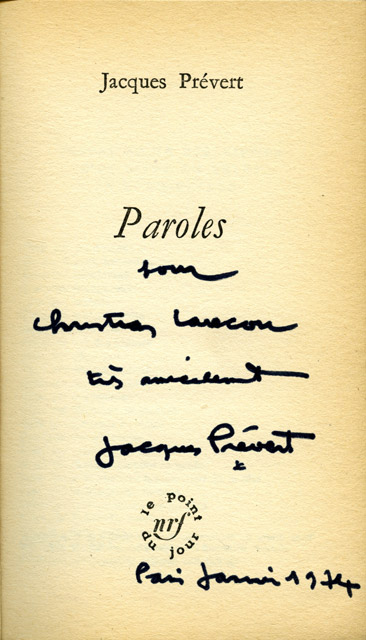 Jacques Prévert
Paroles
pour
Christian
très amicalement
Jacques Prévert
le point du jour
nrf
Paris Janvier 1974